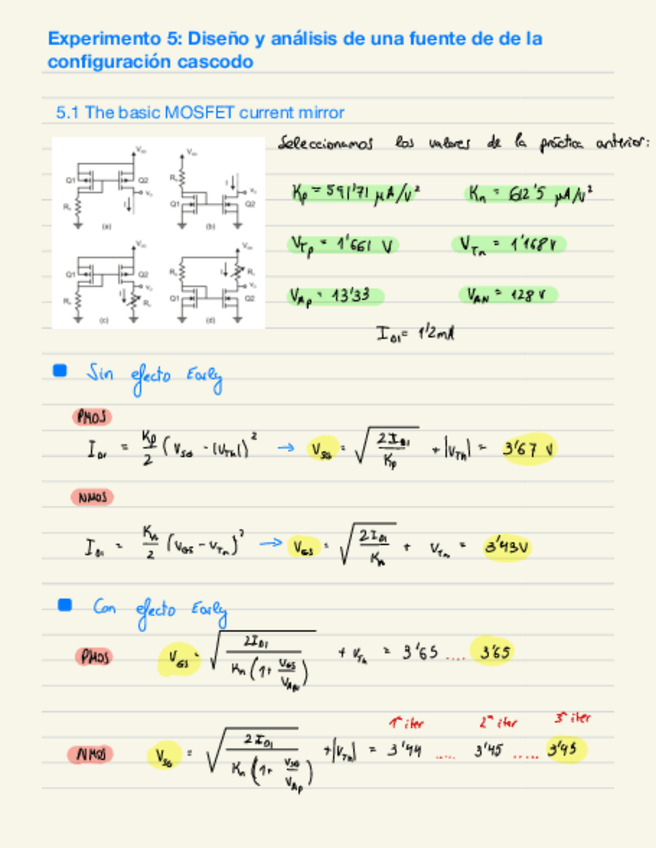 Experimento 5: Diseño y análisis de una fuente de de la
configuración cascodo
5.1 The basic MOSFET current mirror
Seleccionamos los valores de la práctica anterior:
Kp = 591'71 μA/V² Kn = 612'5 μA/V²
VTp = 1'661 V VTn = 1'168 V
VAp = 13'33 VAN = 128 V
ID1 = 1'2mA
Q1 Q2 (a) Q1 Q2 (b)
Q1 Q2 (c) Q1 Q2 (d)
Sin efecto Early
PMOS
ID1 = Kp/2 (VSG - |VTh|)² → VSG = √(2ID1/Kp) + |VTh| = 3'67 V
NMOS
ID1 = Kn/2 (VGS - VTn)² → VGS = √(2ID1/Kn) + VTn = 3'43V
Con efecto Early
PMOS VGS = √(2ID1/(Kn(1+VGS/VAN))) + VTn = 3'65 .... 3'65
1ª iter 2ª iter 3ª iter
NMOS VSG = √(2ID1/(Kn(1+VSG/VAp))) + |VTh| = 3'44 ..... 3'45 ..... 3'45